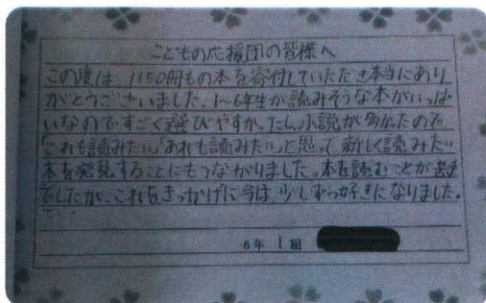 こどもの応援団の皆様へ
この度は、1150冊もの本を寄付していただき本当にあり
がとうございました。1〜6年生が読みそうな本がいっぱ
いなのですごく選びやすかったし、小説が多かったので
「これも読みたい」「あれも読みたい」と思って、新しく読みたい
本を発見することにもつながりました。本を読むことが苦手
でしたが、これをきっかけに今は、少しずつ好きになりました。
6年 1組